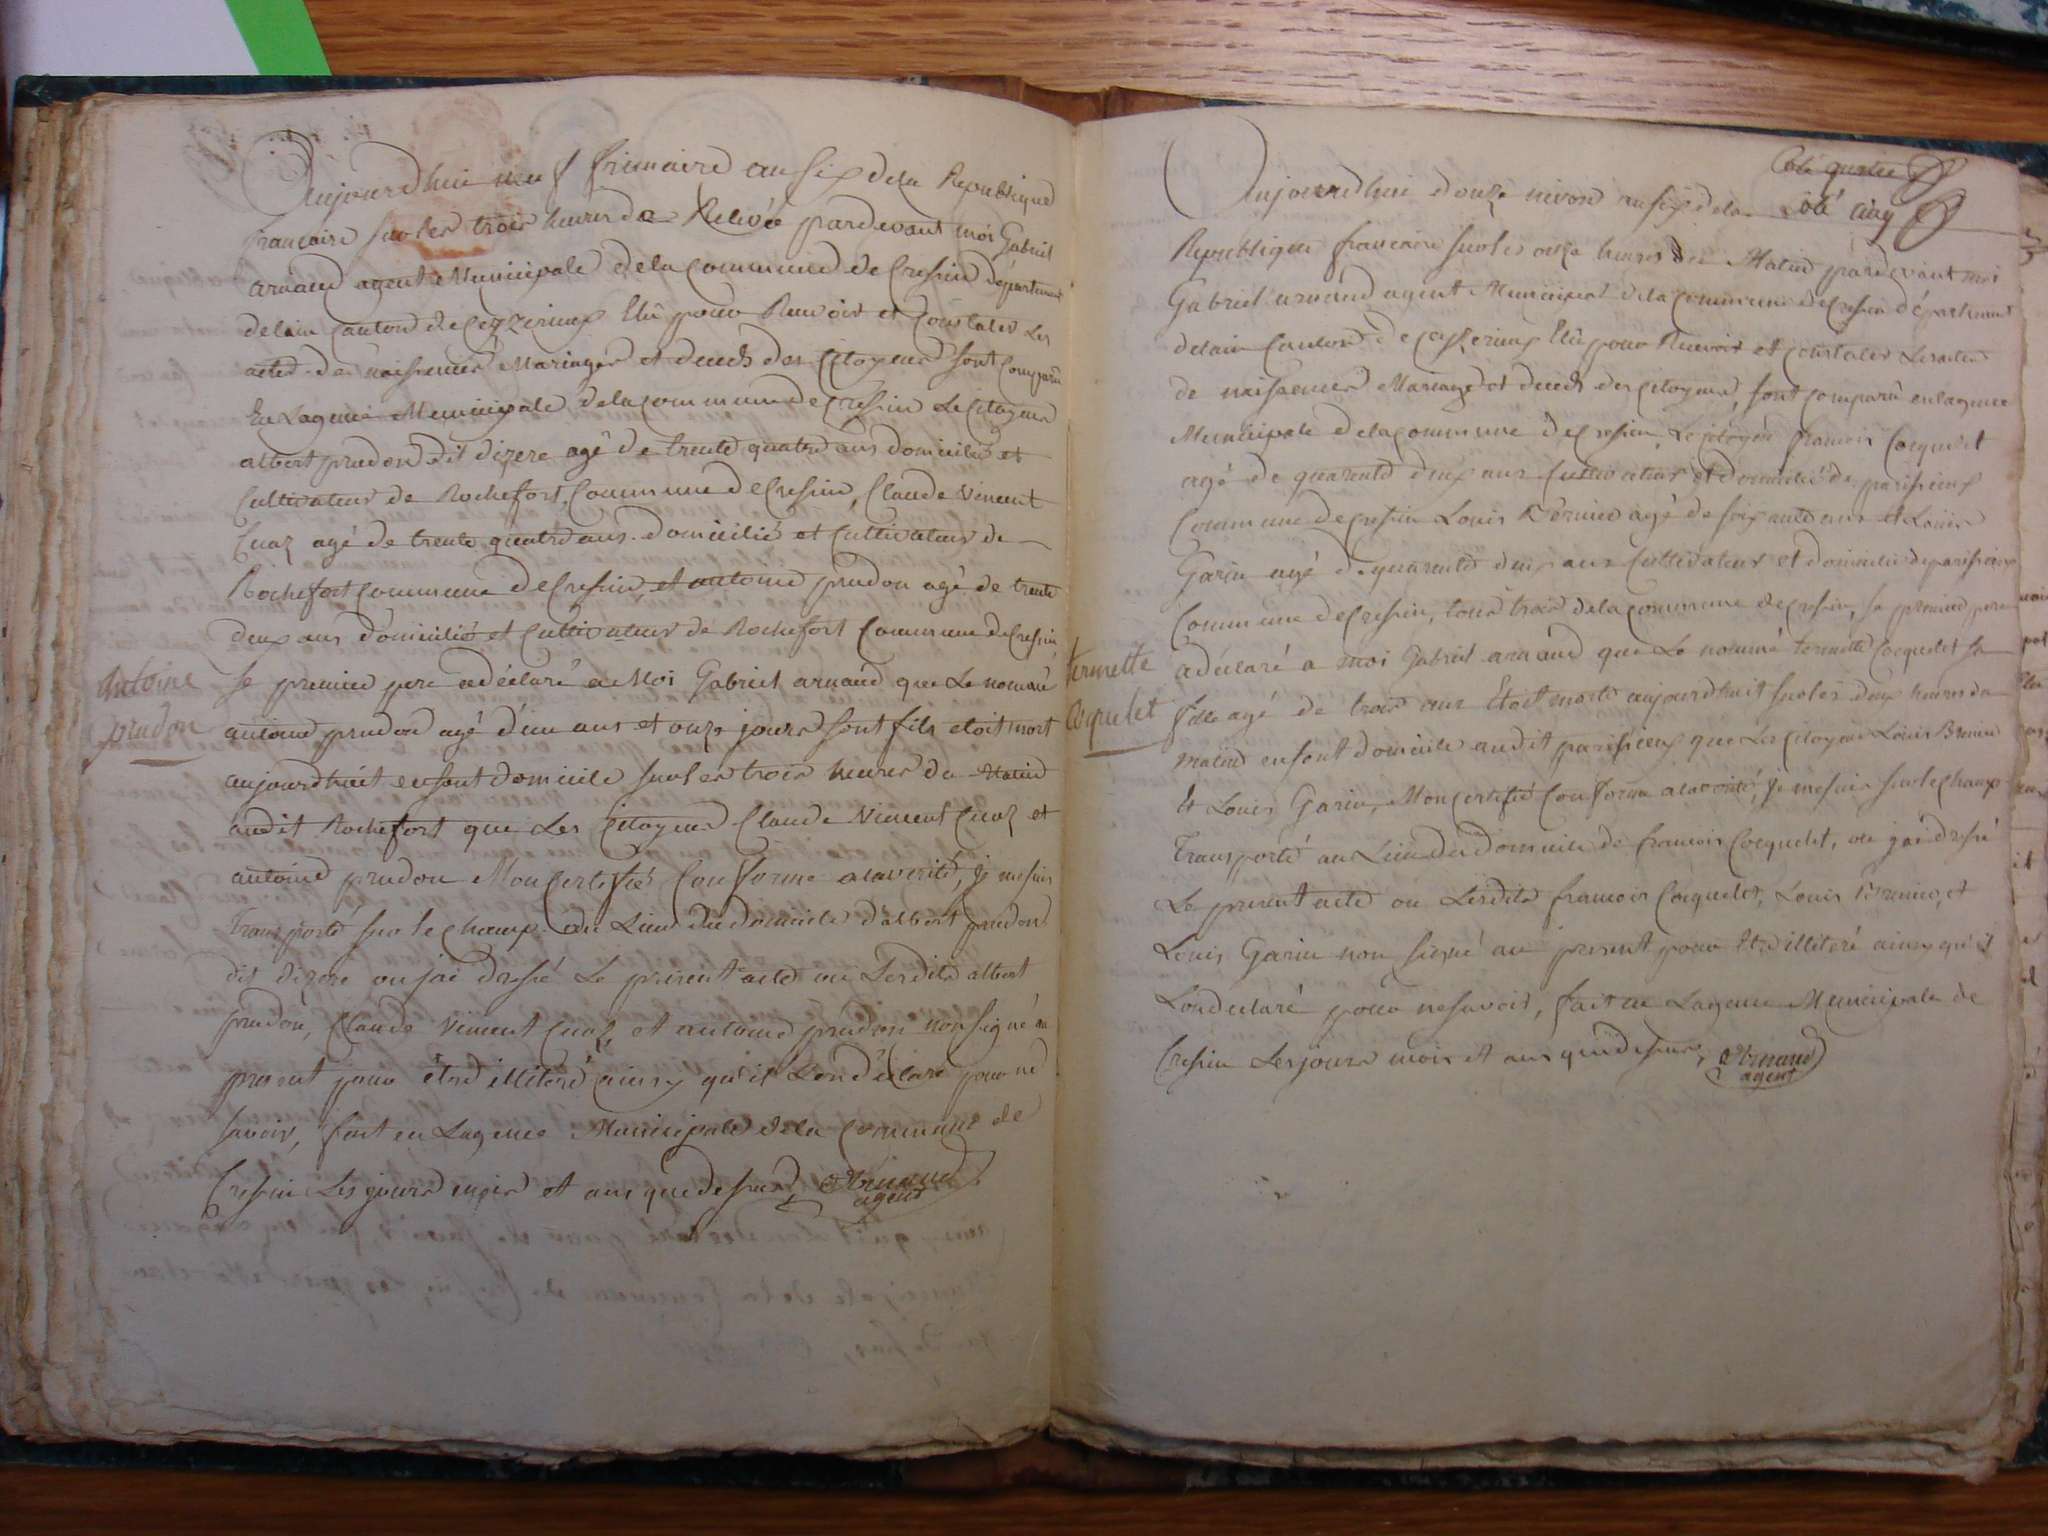 Aujourdhui neuf frimaire an six dela Republique
francaise sur les trois heures de Relevée pardevant moi Gabriel
arnaud agent Municipale dela commune de Cressin département
delain canton de Ceyzerieux Elû pour Recevoir et Constater Les
actes de naissences Mariages et deceds des Citoyens sont Comparû
En Lagence Municipale dela commune de Cressin Le Citoyen
albert prudon dit dizere agé de trente quatre ans domicilié et
Cultivateur de Rochefort Commune de Cressin, Claude Vincent
Cuaz agé de trente quatre ans domicilié et Cultivateur de
Rochefort Commune de Cressin, et antoine prudon agé de trente
deux ans domicilié et Cultivateur de Rochefort Commune de Cressin
Antoine
prudon
se premier pere adéclaré a Moi Gabriel arnaud que Le nommé
antoine prudon agé d'un ans et onze jours sont fils etoit mort
aujourdhuit ensont domicile sur les trois heures du Matin
audit Rochefort que Les Citoyens Claude Vincent Cuaz et
antoine prudon Mon Certifié Conforme alaverité, je mesuis
Transporté sur le champ au Lieu du domicile d'albert prudon
dit dizere ou jai dressé Le present acte ou Lesdits albert
prudon, Claude Vincent Cuaz et antoine prudon non signé au
present pour être illiteré ainsy qu'il Londéclaré pour ne
savoir, fait en Lagence Municipale dela Commune de
Cressin Les jours mois et ans que dessus, Arnaud
agent
Coté quatre
Coté cinq
Aujourdhui douze nivose an six dela
Republique francaise sur les onze heures du Matin pardevant moi
Gabriel arnaud agent Municipal dela commune de Cressin département
delain Canton de Ceyzerieux Elû pour Recevoir et constater Les actes
de naissences Mariages et deceds des Citoyens, sont comparû en lagence
Municipale dela commune de Cressin, Le Citoyen francois Coequelet
agé de quarente deux ans Cultivateur et domicilié de parissieux
Commune de Cressin Louis Bernier agé de soixante ans et Louis
Garin agé de quarente deux ans Cultivateur et domicilié de parissieux
Commune de Cressin, tous trois dela commune de Cressin, se premier pere
termette
coquelet
adéclaré a moi Gabriel arnaud que La nommé termette Coequelet sa
fille agé de trois ans Etoit morte aujourdhuit sur les deux heures du
matin ensont domicile audit parissieux que Les Citoyens Louis Bernier
Et Louis Garin, Mon Certifié Conforme alaverité, je mesuis sur le champ
Transporté au Lieu du domicile de francois Coequelet, ou jai dressé
Le present acte ou Lesdits francois Coequelet, Louis Bernier, et
Louis Garin non signé au present pour Etre illiteré ainsy qu'il
Londeclaré pour ne savoir, fait en Lagence Municipale de
Cressin Les jours mois et ans que dessus, Arnaud
agent